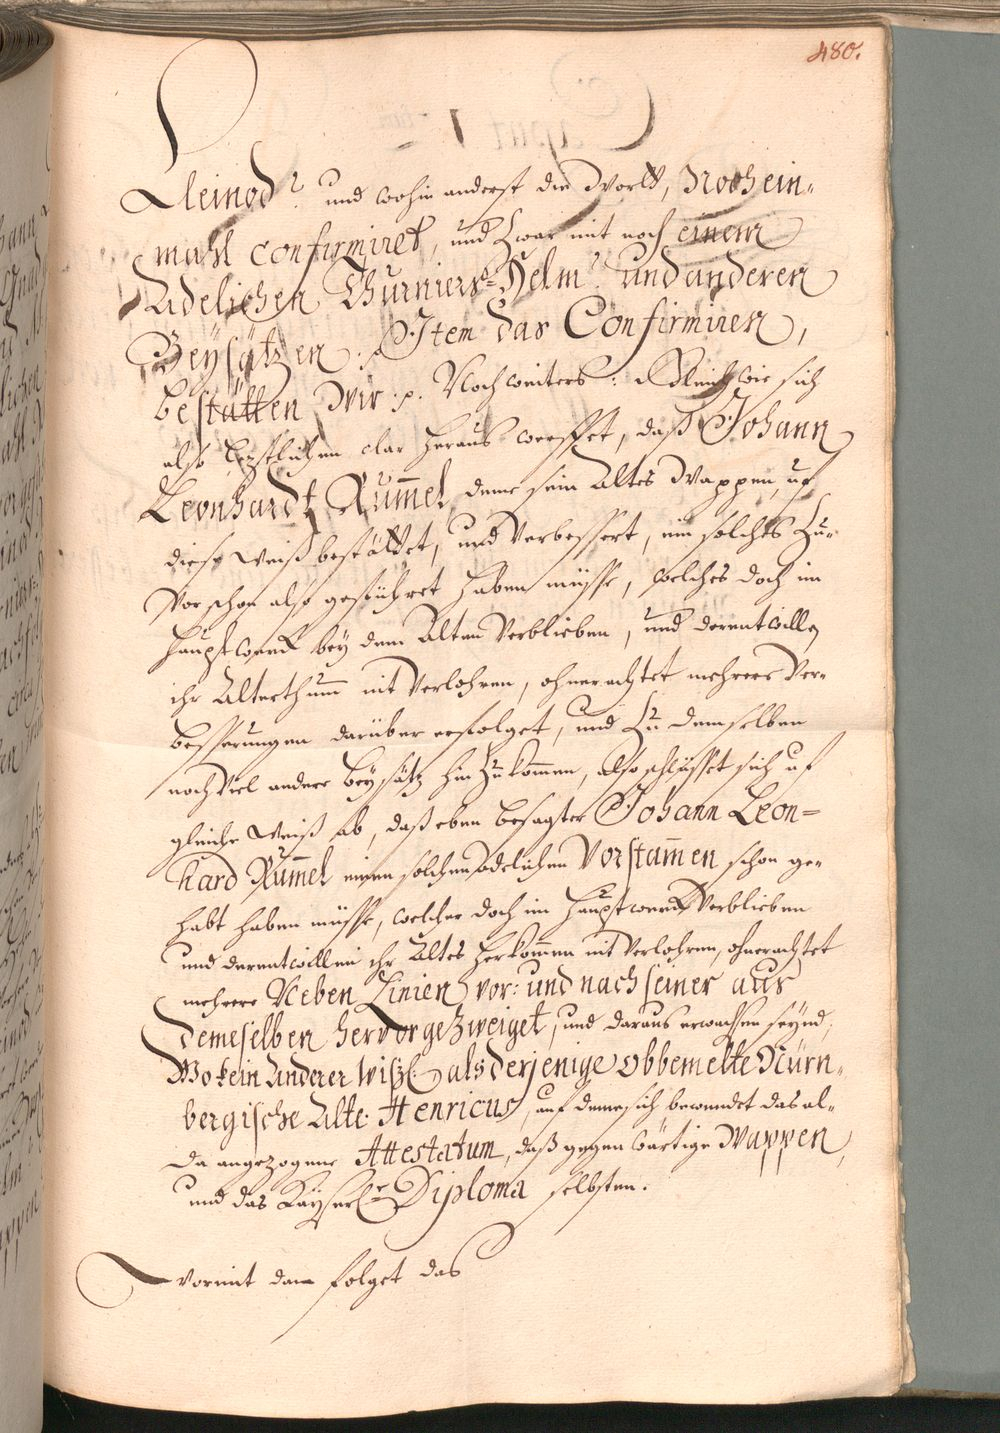 480.
Cleinod? und wohin anderst die Wort, Nochein-
mahl confirmiret, und Zwar mit noch einem
Adelichen Thurniers-Helm? und anderen
Beysätzen. Item das Confirmiren,
bestätten Wir :p. Noch weiters: Gleich wie sich
also Erstlichen clar heraus werffet, daß Johann
Leonhardt Rümmel, deme sein Altes Wappen uf
diese Weiß bestättet, und Verbessert, ein solches Zu-
vor schon also geführet haben müsse, welches doch im
Hauptwerk bey dem Alten Verblieben, und derentwillen
ihr Alterthumb nit Verlohren, ohnerachtet mehrere Ver-
besserungen darüber erfolget, und Zu demselben
noch Viel andere Beysätz hin Zukommen, also schlüsset sich uf
gleiche Weiß ab, daß eben besagter Johann Leon-
hard Rümmel einen solchen adelichen Vorstammen schon ge-
habt haben müsse, welcher doch im Hauptwerk Verblieben
und derentwillen ihr Altes Herkommen nit Verlohren, ohnerachtet
mehrere Neben Linien vor: und nach seiner aus
demeselben hervorgezweiget, und daraus erwachsen seynd,
Wo kein Anderer als derjenige obbemelte Nürn-
bergische Alte Henricus, auf deme sich bewendet das al-
da angezogene Attestatum, daß gegenwärtige Wappen,
und das Kayserl: Diploma selbsten.
Wormit dann folget das